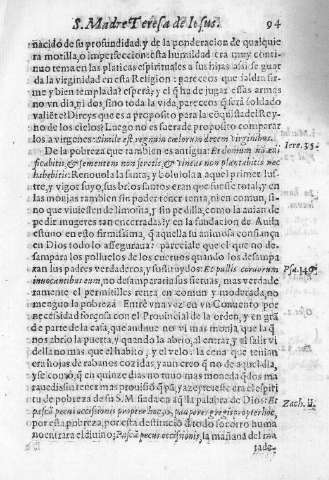 S. Madre Teresa de Iesus. 94
nacido de su profundidad, y de la ponderacion de qualquie
ra motilla, o imperfeccion: esta humildad era muy conti-
nuo tema en las platicas espirituales a sus hijas assi se guar
da la virginidad en esta Religion: pareceos que saldra fir-
me y bien templada? espera; y el q̃ ha de jugar essas armas
no vn dia, ni dos, sino toda la vida, pareceos q̃ serà soldado
valiẽte? Direys que es a proposito para la cõquista del Rey-
no de los cielos? Luego no es fuera de proposito comparar
los a virgenes: Simile est regnum cælorum decem virginibus.
De la pobreza, que tambien es antigua: Et domum no ædi
ficabitis, & sementem non seretis, & vineas non plantabitis nec
habebitis: Renouola la santa; y boluiola a aquel primer lus-
tre, y vigor suyo, sus briosos intentos eran que fuesse total, y en
las monjas tambien sin poder tener renta, ni en comun, si-
no que viuiessen de limosna, y sin pedilla, como la auian de
pedir mugeres tan encerradas? y en la fundacion de Auila
estuuo en esto firmissima, q̃ aquella tu animosa confiança
en Dios todo lo assegurara: parecia le que el que no de-
sampara los polluelos de los cueruos quando los desampa
ran sus padres verdaderos, y sustituydos: Et pullis coruorum
inuocantibus eum, no desampararia sus sieruas, mas verda-
deramente el permitilles renta en comun y moderada, no
menguo la pobreza. Entrè vna vez en vn Conuento por
necessidad forçosa con el Prouincial de la orden, y en gra
de parte de la casa, que anduue no vi mas monja, que la q̃
nos abrio la puerta, y quando la abrio, al entrar, y al salir vi
della no mas que el habito, y el velo: la cena que tenian
era hojas de rabanos cozidas, y aun creo q̃ no de aquel dia,
y se como, q̃ en quinze dias no tuuo mas moneda q̃ los ma
rauedis
tu de pobreza de su S. M. fiada en aq̃lla palabra de Dios: Et
pascã pecus occisionis propter hoc, o pauperes gregis propter hoc,
por esta pobreza, por esta destinuciõ de todo socorro huma
no entrara el diuino; Pascã pecus occisionis, la manada del ma
tade-
Iere. 35.
Psa. 146.
Zach. 11.